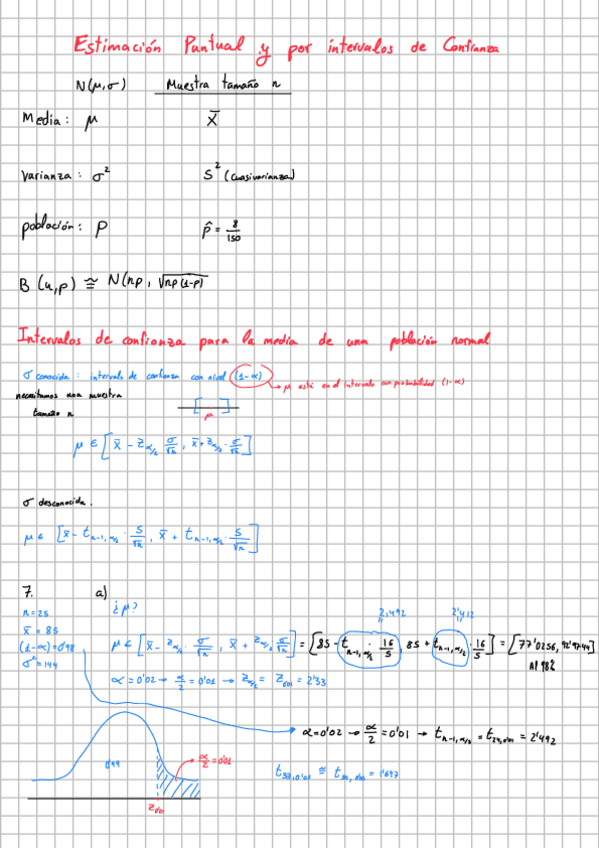 Estimación Puntual y por intervalos de Confianza
N(μ,σ) Muestra tamaño n
Media: μ x̄
Varianza: σ² S² (cuasivarianza)
población: P p̂ = 8/150
B(n,p) ≅ N(np, √np(1-p)
Intervalos de confianza para la media de una población normal
σ conocida: intervalo de confianza con nivel (1-α)
→ μ está en el intervalo con probabilidad (1-α)
necesitamos una muestra
tamaño n
[ ]
μ
μ ∈ [x̄ - z_α/2 · σ/√n, x̄ + z_α/2 · σ/√n]
σ desconocida.
μ ∈ [x̄ - t_n-1,α/2 · S/√n, x̄ + t_n-1,α/2 · S/√n]
7. a) ¿μ?
n = 25
x̄ = 85
(1-α) = 0'98
σ² = 144
2,492 2'412
μ ∈ [x̄ - z_α/2 · σ/√n, x̄ + z_α/2 · S/√n] = [85 - t_n-1,α/2 · 16/5, 85 + t_n-1,α/2 · 16/5] = [77'0256, 92'9744]
Al 98%
α = 0'02 → α/2 = 0'01 → z_α/2 = z_0'01 = 2'33
α = 0'02 → α/2 = 0'01 → t_n-1,α/2 = t_24,0'01 = 2'492
0'99
α/2 = 0'01
z_0'01
≅ t_30,0'05 = 1'697